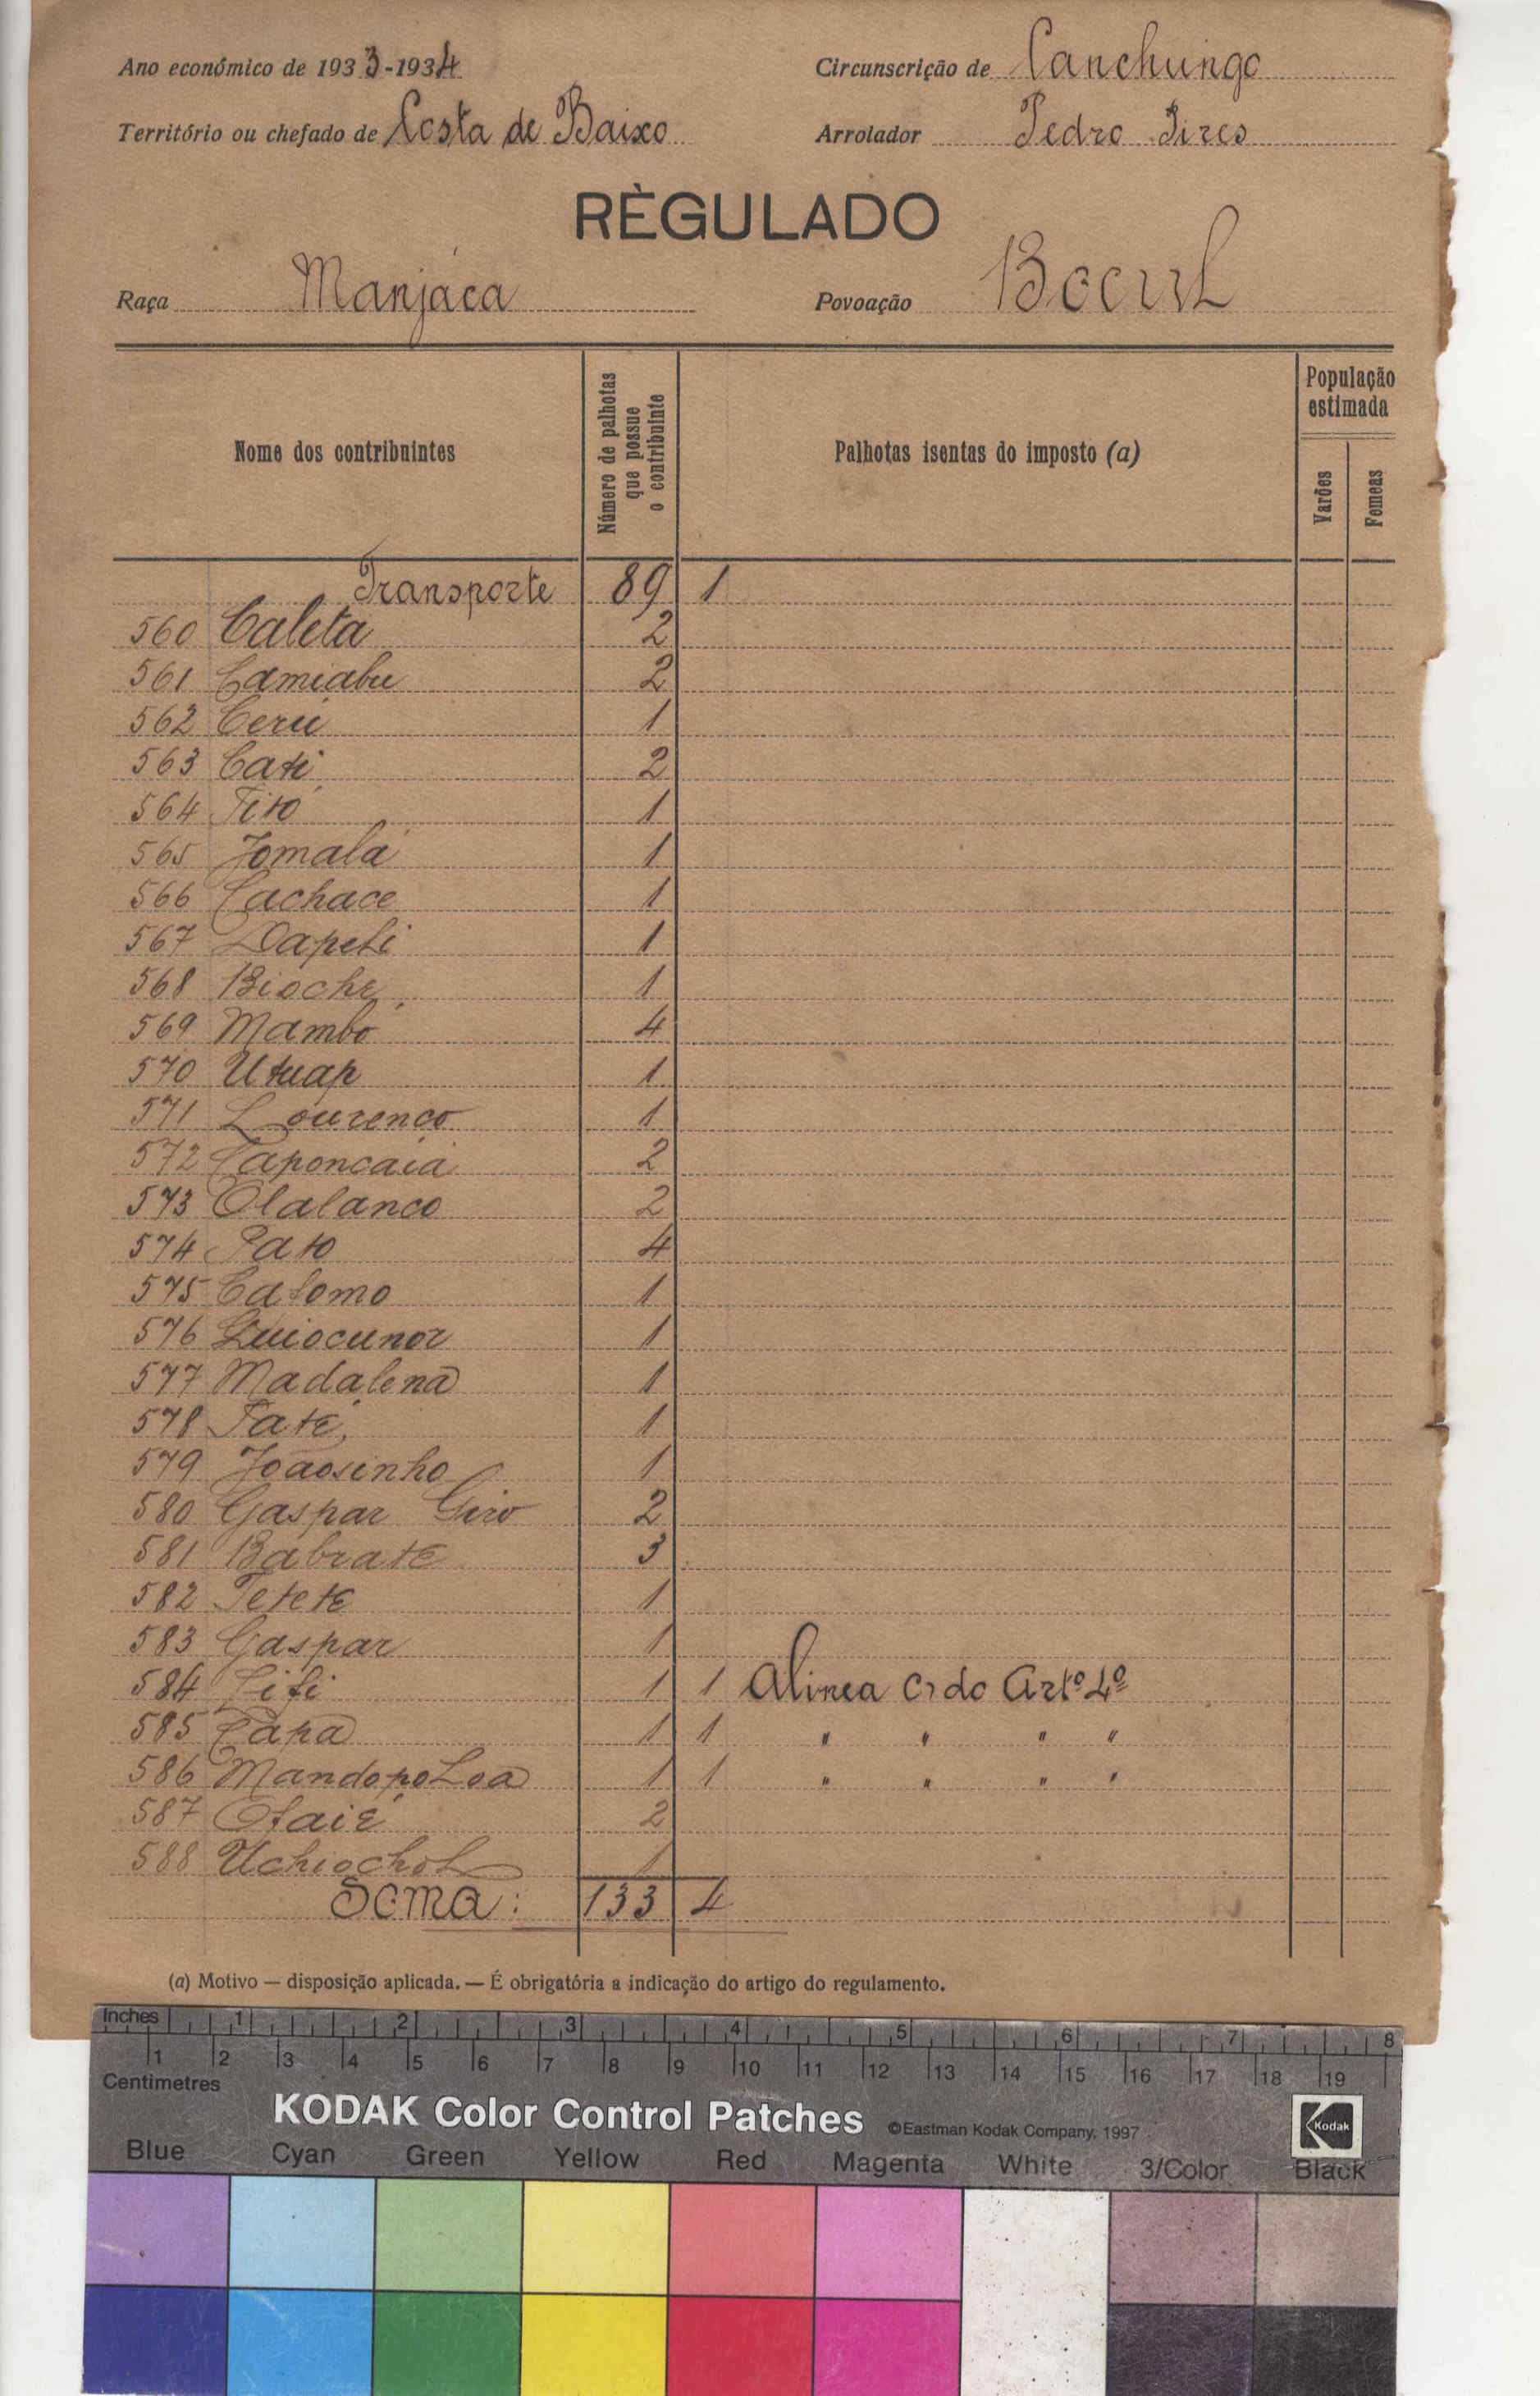 Ano económico de 1933-1934
Circunscrição de Canchungo
Território ou chefado de Costa de Baixo
Arrolador Pedro Pires
RÈGULADO
Raça Manjáca
Povoação Bocul
Nome dos contribuintes
Número de palhotas que possue o contribuinte
Palhotas isentas do imposto (a)
População estimada
Varões
Femeas
Transporte 89 1
560 Caleta 2
561 Camiabu 2
562 Cerú 1
563 Cati 2
564 Titó 1
565 Jomalá 1
566 Cachace 1
567 Dapeli 1
568 Bioche 1
569 Mambó 4
570 Utuap 1
571 Lourenco 1
572 Caponcaiá 2
573 Olalanco 2
574 Pato 4
575 Calomo 1
576 Quiocunor 1
577 Madalena 1
578 Taté 1
579 Joãosinho 1
580 Gaspar Giro 2
581 Babrate 3
582 Tetete 1
583 Gaspar 1
584 1 1 Alinea c) do Artº 4º
585 Capa 1 1 " " " "
586 Mandopoloa 1 1 " " " "
587 Ofaié 2
588 Uchiochol 1
Soma: 133 4
(a) Motivo — disposição aplicada. — É obrigatória a indicação do artigo do regulamento.
Inches 1 2 3 4 5 6 7 8
1 2 3 4 5 6 7 8 9 10 11 12 13 14 15 16 17 18 19
Centimetres
KODAK Color Control Patches ©Eastman Kodak Company, 1997 Kodak
Blue Cyan Green Yellow Red Magenta White 3/Color Black